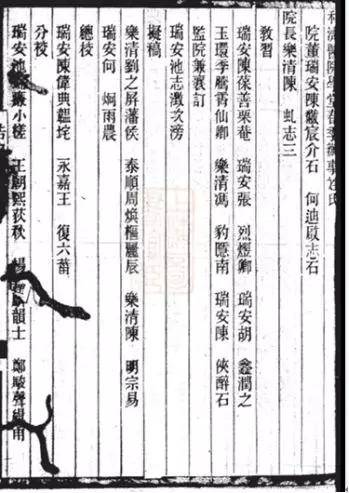 利濟醫院學堂
院董瑞安陳黻宸介石　何迪啟志石
院長樂清陳　虬志三
教習
瑞安陳葆善栗菴　瑞安張　烈煜卿　瑞安胡　鑫潤之
玉環季騰霄仙卿　樂清馮　豹隱南　瑞安陳　俠醉石
監院兼襄訂
瑞安池志澂次滂
擬稿
樂清劉之屏藩侯　泰順周煥樞麗辰　樂清陳　明宗易
總校
瑞安何　炯雨農
分校
瑞安陳偉典韞垞　永嘉王　復六苗
瑞安池　小槎　王朝熙荻秋　楊　韻士　鄭駿聲緝甫